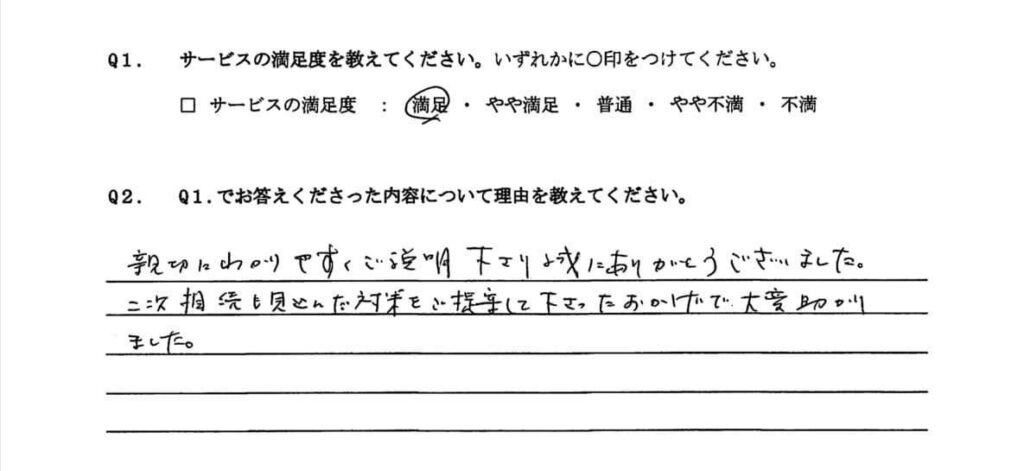 Q1. サービスの満足度を教えてください。いずれかに〇印をつけてください。
□ サービスの満足度 : 満足 ・ やや満足 ・ 普通 ・ やや不満 ・ 不満
Q2. Q1.でお答えくださった内容について理由を教えてください。
親切にわかりやすくご説明下さり誠にありがとうございました。
二次相続も見込んだ対策をご提案して下さったおかげで大変助かり
ました。